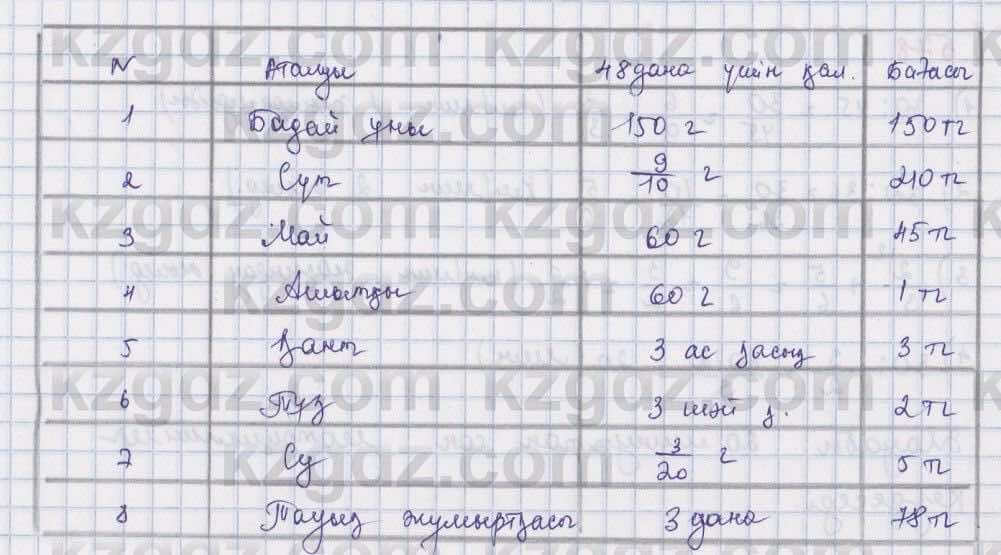 N Аталуы 48 дана үшін қал. Бағасы
1 Бидай ұны 150 г 150 тг
2 Сүт 9/10 г 210 тг
3 Май 60 г 45 тг
4 Ашытқы 60 г 1 тг
5 Қант 3 ас қасық 3 тг
6 Тұз 3 шай қ. 2 тг
7 Су 3/20 г 5 тг
8 Тауық жұмыртқасы 3 дана 78 тг
kzgdz.com kzgdz.com
kzgdz.com
kzgdz.com kzgdz.com
kzgdz.com
kzgdz.com kzgdz.com
kzgdz.com
kzgdz.com kzgdz.com